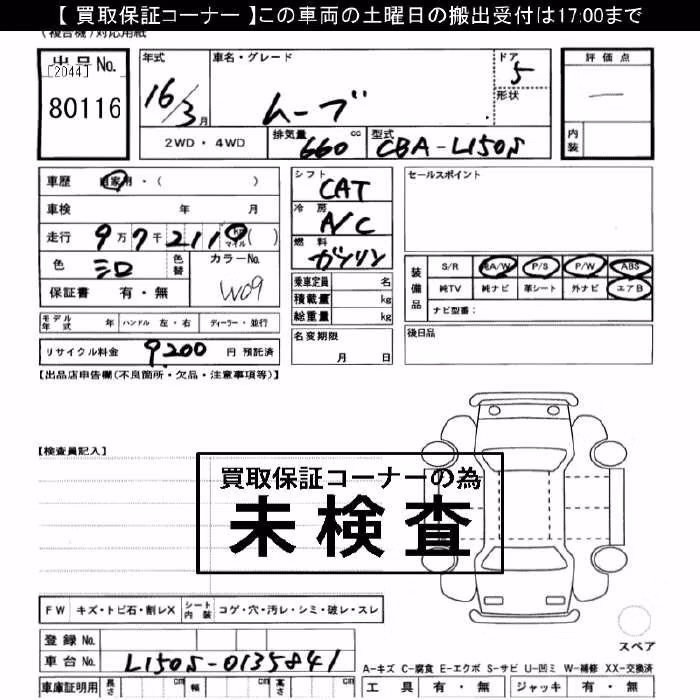 【 買取保証コーナー 】この車両の土曜日の搬出受付は17:00まで
(複合機)対応用紙
出品No.
[2044]
80116
年式
16/3月
車名・グレード
ムーブ
ドア
5
形状
2WD ・ 4WD
排気量 660 cc
型式 CBA-L150S
評価点
—
内装
車歴 自家用 ・ ( )
車検 年 月
走行 9万7千211 マイル ( )
色
色替
カラーNo.
W09
保証書 有 ・ 無
モデル年式 年 ハンドル 左・右 ディーラー・並行
リサイクル料金 9200 円 預託済
シフト
CAT
冷房
A/C
燃料
ガソリン
乗車定員 名
積載量 kg
総重量 kg
名変期限
月 日
セールスポイント
装備品
S/R 純A/W P/S P/W ABS
純TV 純ナビ 革シート 外ナビ エアB
ナビ型番:
後日品
【出品店申告欄(不良箇所・欠品・注意事項等)】
【検査員記入】
買取保証コーナーの為
未検査
FW キズ・トビ石・割レX シート内装 コゲ・穴・汚レ・シミ・破レ・スレ
登録No.
車台No. L150S-0135841
車庫証明用 長さ cm 幅 cm 高さ cm
スペア
A-キズ C-腐食 E-エクボ S-サビ U-凹ミ W-補修 XX-交換済
工具 有 ・ 無 ジャッキ 有 ・ 無